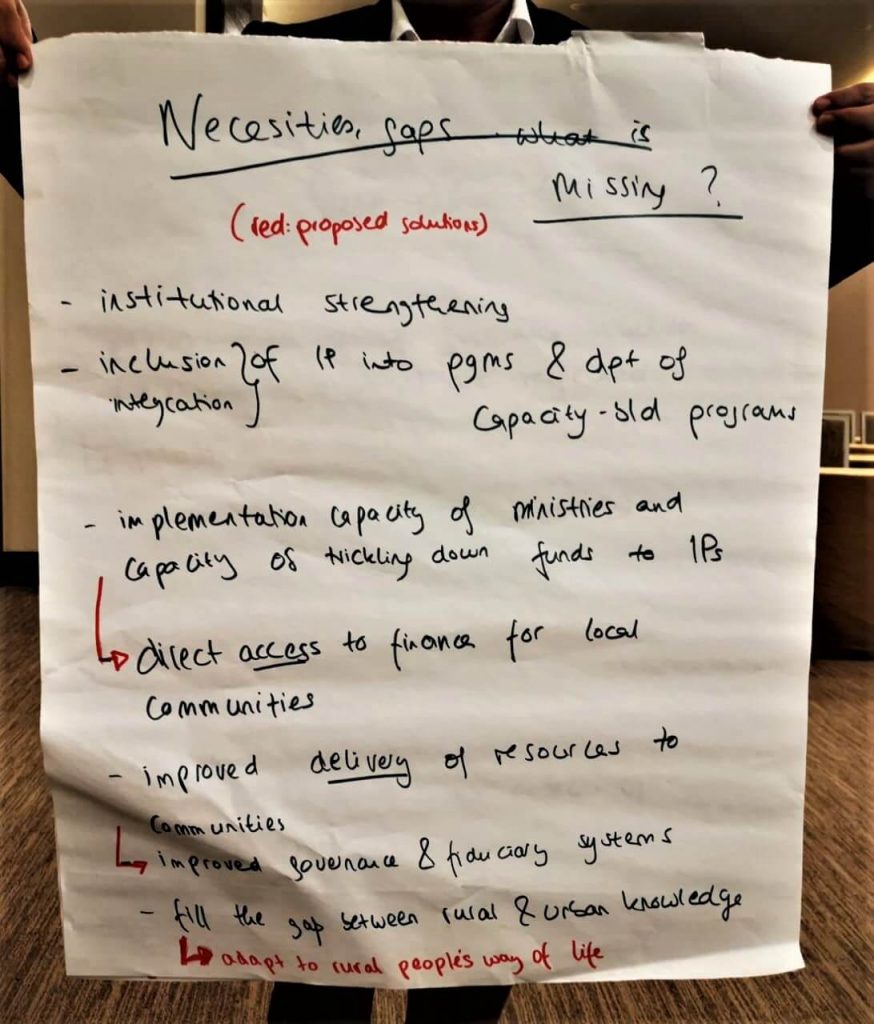 Necesities, gaps what is
missing ?
(red: proposed solutions)
- institutional strengthening
- inclusion } of IP into pgms & dpt of
integration } capacity-bld programs
- implementation capacity of ministries and
capacity of trickling down funds to IPs
direct access to finance for local
communities
- improved delivery of resources to
communities
improved governance & fiduciary systems
- fill the gap between rural & urban knowledge
adapt to rural people's way of life